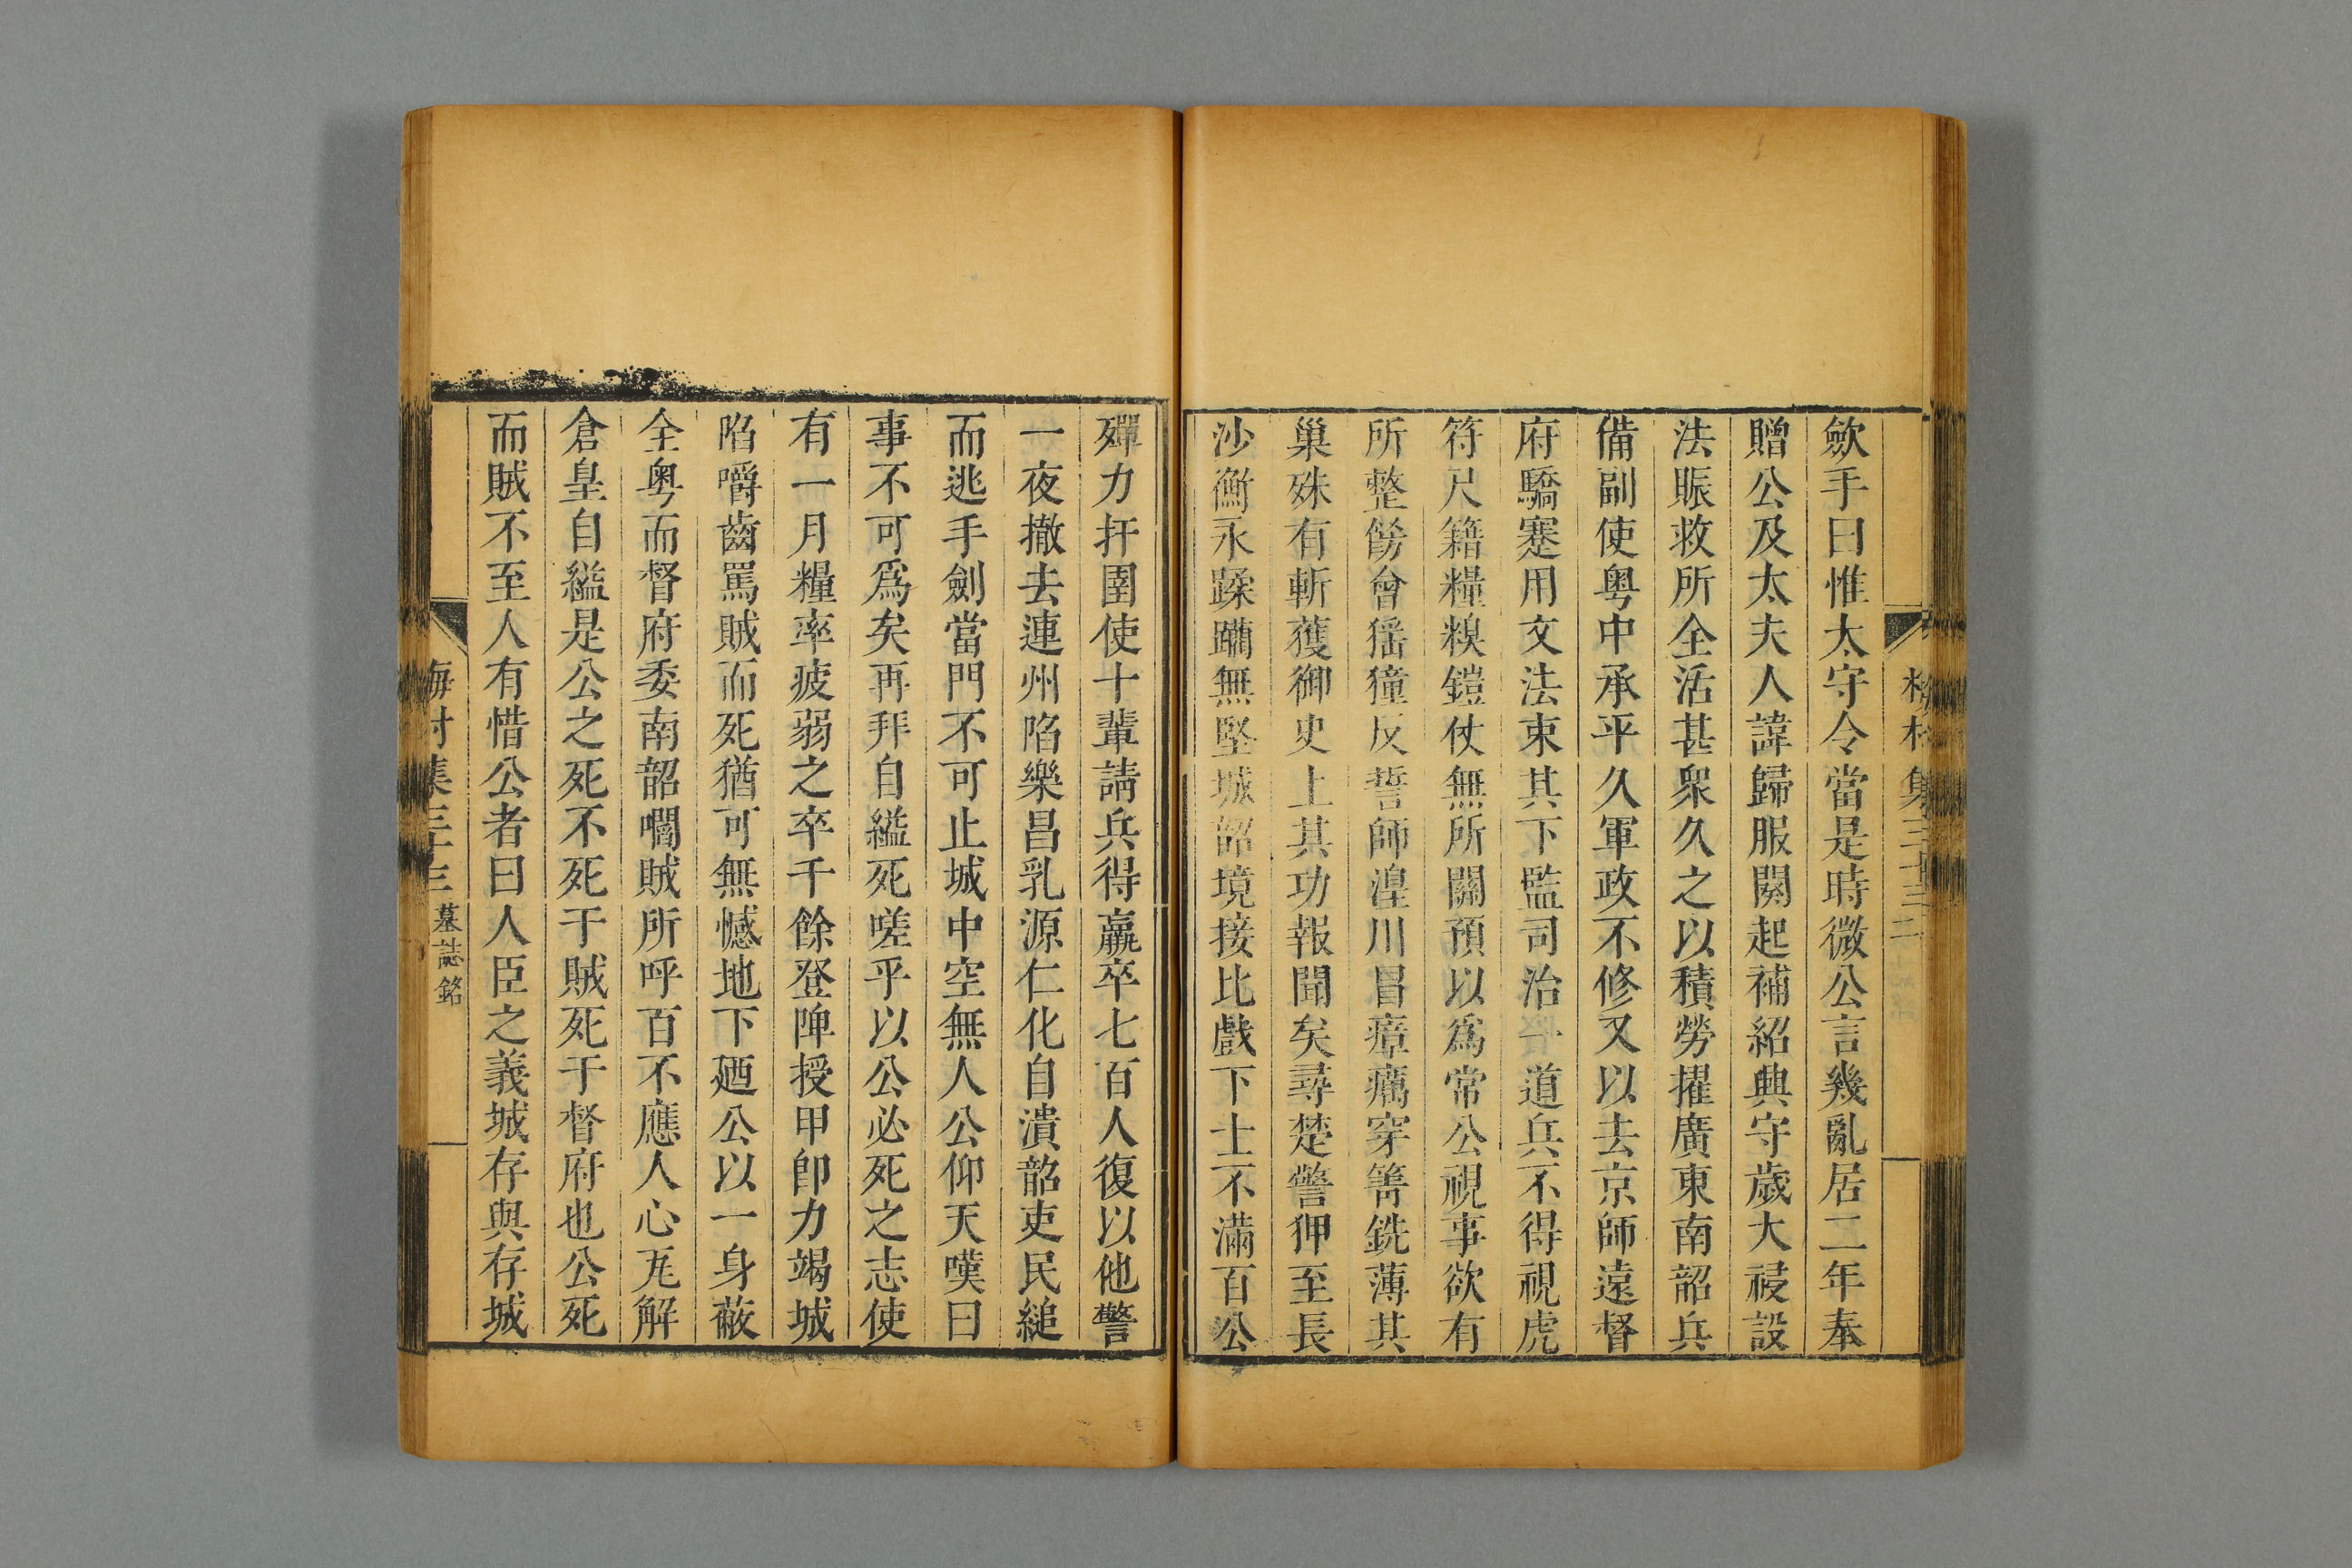 歛手曰惟太守令當是時微公言幾亂居二年奉
贈公及太夫人諱歸服闋起補紹興守歲大祲設
法賑救所全活甚衆久之以積勞擢廣東南韶兵
備副使粤中承平久軍政不修又以去京師遠督
府驕蹇用文法束其下監司治一道兵不得視虎
符尺籍糧糗鎧仗無所關預以爲常公視事欲有
所整飭會猺獞反誓師湟川冒瘴癘穿箐銑薄其
巢殊有斬獲御史上其功報聞矣尋楚警狎至長
沙衡永蹂躪無堅城韶境接比戲下士不滿百公
殫力扞圉使十輩請兵得羸卒七百人復以他警
一夜撤去連州陷樂昌乳源仁化自潰韶吏民縋
而逃手劍當門不可止城中空無人公仰天嘆曰
事不可爲矣再拜自縊死嗟乎以公必死之志使
有一月糧率疲弱之卒千餘登陴授甲卽力竭城
陷嚼齒罵賊而死猶可無憾地下廼公以一身蔽
全粤而督府委南韶噉賊所呼百不應人心瓦解
倉皇自縊是公之死不死于賊死于督府也公死
而賊不至人有惜公者曰人臣之義城存與存城
梅村集三十三 墓誌銘